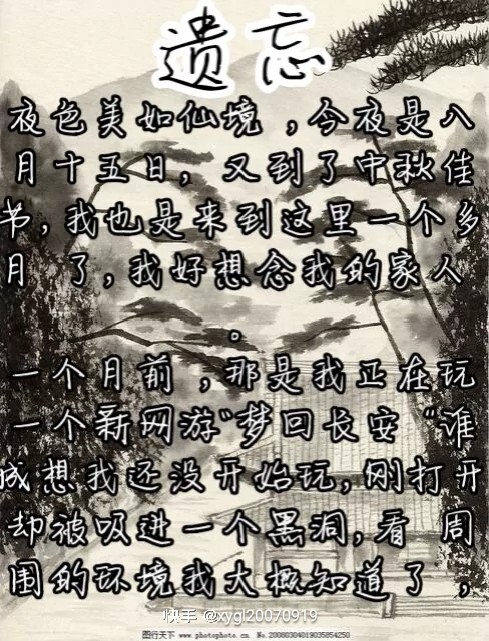 遗忘
夜色美如仙境，今夜是八
月十五日，又到了中秋佳
节，我也是来到这里一个多
月 了，我好想念我的家人
。
一个月前，那是我正在玩
一个新网游“梦回长安“谁
成想我还没开始玩，刚打开
却被吸进一个黑洞，看 周
围的环境我大概知道了，
快手 @xygl20070919
图行天下 www.photophoto.cn No.20080304019035854250